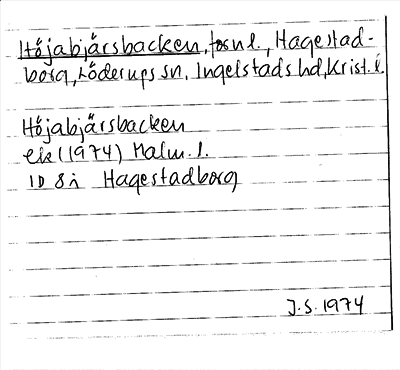 Höjabjärsbacken, fornl., Hagestad-
borg, Löderups sn, Ingelstads hd, Krist. l.
Höjabjärsbacken
ek (1974) Malm. l.
1D 8i Hagestadborg
J.S. 1974